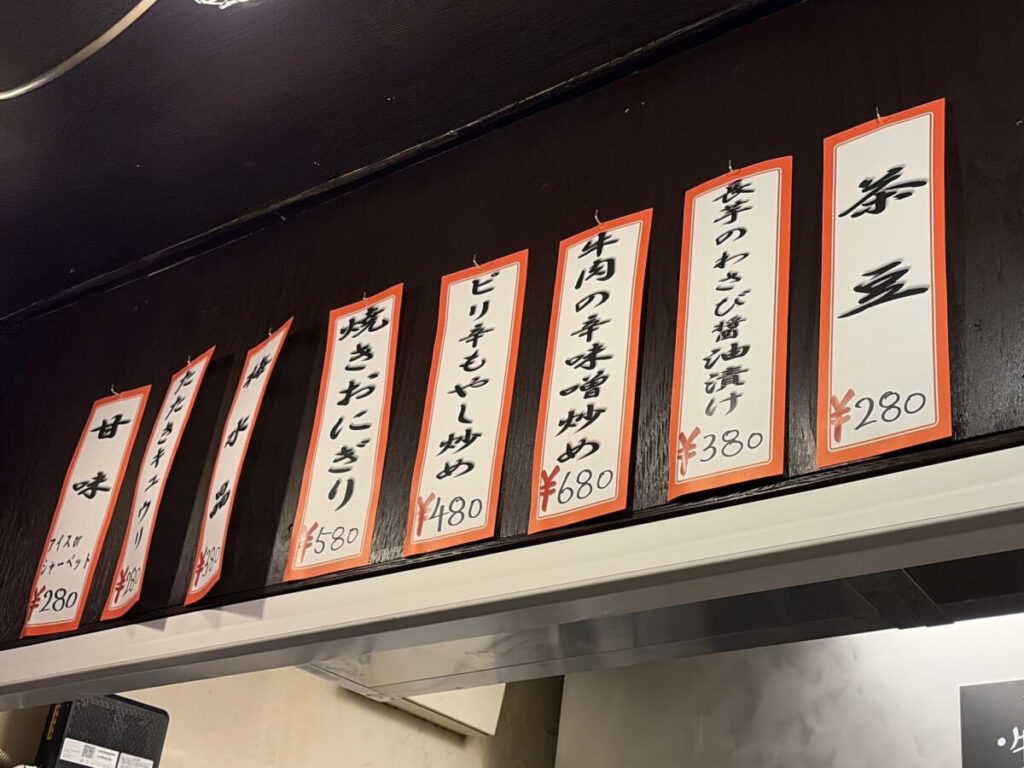 茶豆
¥280
長芋のわさび醤油漬け
¥380
牛肉の辛味噌炒め
¥680
ピリ辛もやし炒め
¥480
焼きおにぎり
¥580
梅水晶
¥380
たたきキュウリ
¥280
甘味
アイスor
シャーベット
¥280